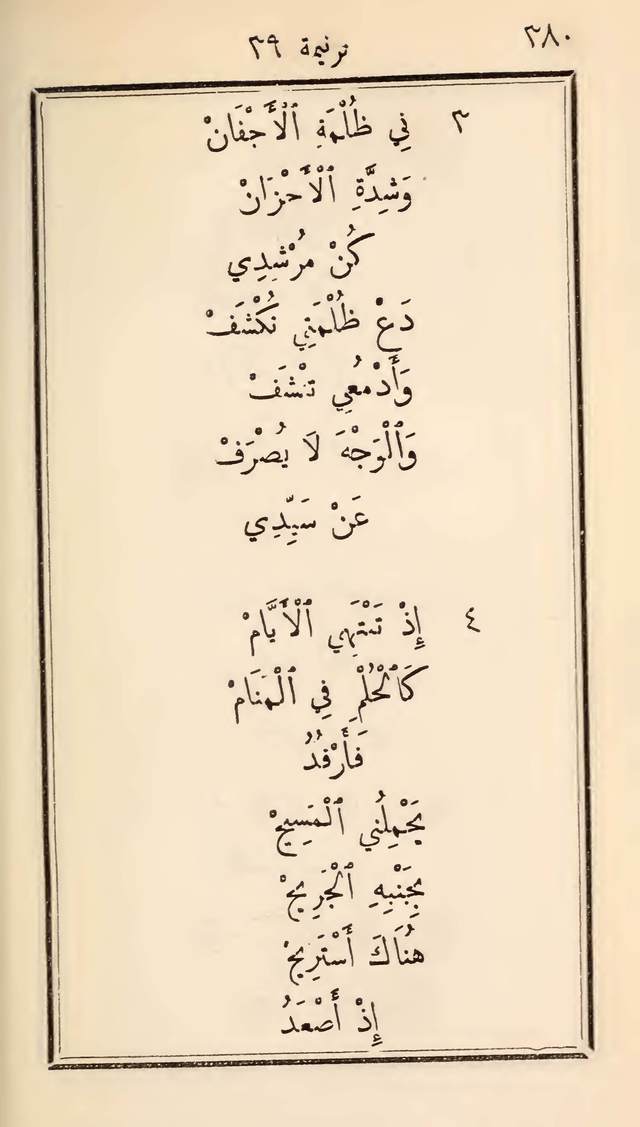 ٣٨٠
ترنيمة ٣٩
٣ فِي ظُلْمَةِ ٱلْأَجْفَانْ
وَشِدَّةِ ٱلْأَحْزَانْ
كُنْ مُرْشِدِي
دَعْ ظُلْمَتِي تُكْشَفْ
وَأَدْمُعِي تُنْشَفْ
وَٱلْوَجْهَ لَا يُصْرَفْ
عَنْ سَيِّدِي
٤ إِذْ تَنْتَهِي ٱلْأَيَّامْ
كَٱلْحُلْمِ فِي ٱلْمَنَامْ
فَأَرْقُدُ
يَحْمِلُنِي ٱلْمَسِيحْ
بِجَنْبِهِ ٱلْجَرِيحْ
هُنَاكَ أَسْتَرِيحْ
إِذْ أَصْعَدُ